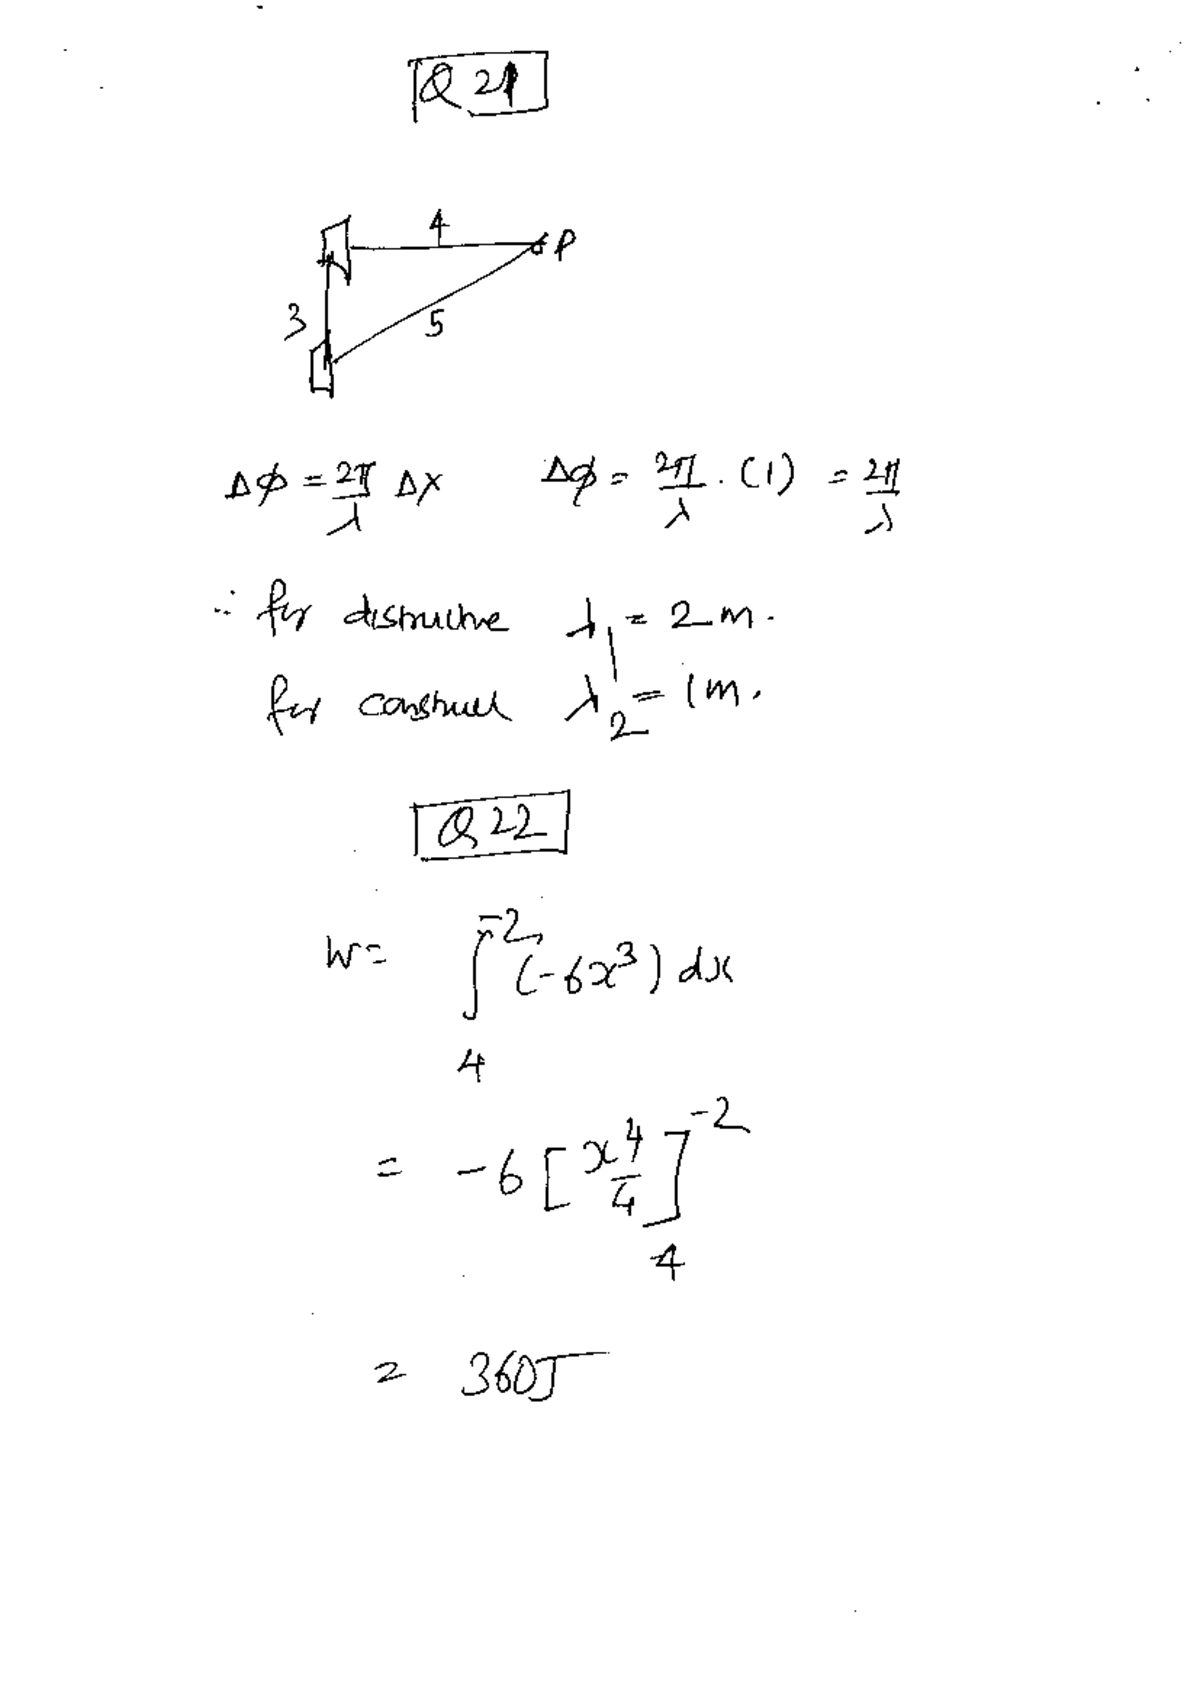 Q 21
4
P
3
5
Δϕ = 2π/λ Δx    Δϕ = 2π/λ . (1) = 2π/λ
∴ for distructive λ₁ = 2 m.
for construct λ₂ = 1 m.
Q 22
W = ∫₄⁻² (-6x³) dx
= -6 [x⁴/4]₄⁻²
= 360J